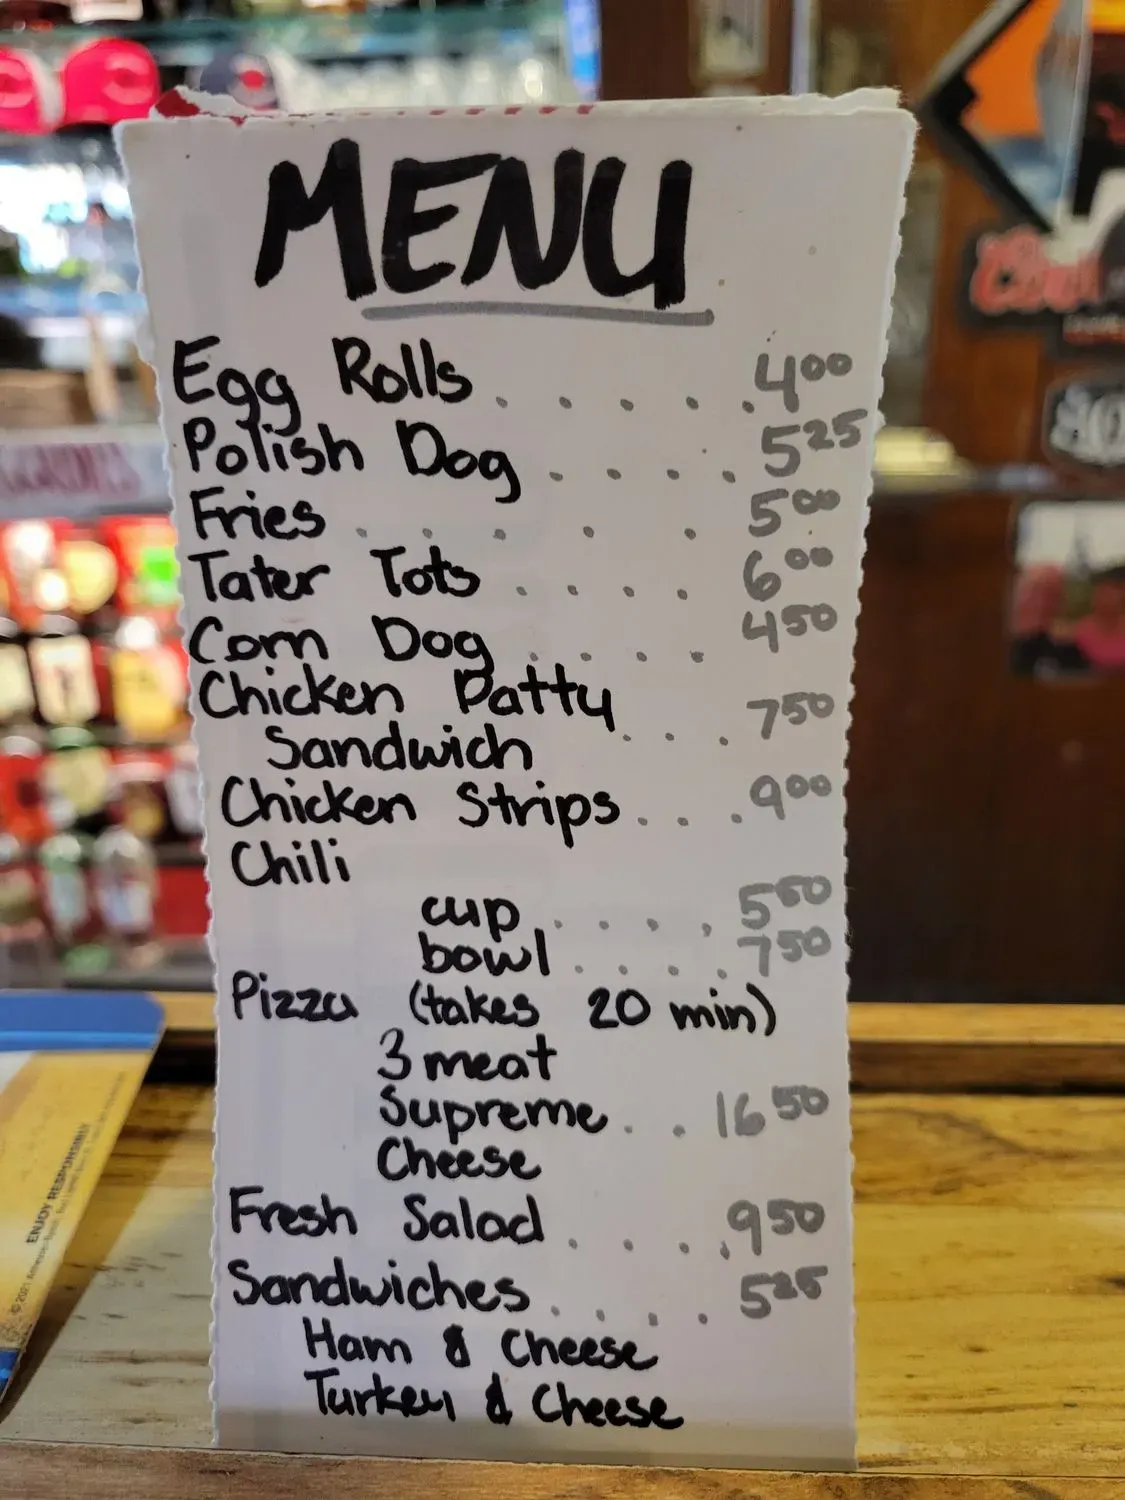 MENU
Egg Rolls . . . . . 4.00
Polish Dog . . . . 5.25
Fries . . . . . 5.00
Tater Tots . . . . 6.00
Corn Dog . . . . 4.50
Chicken Patty
Sandwich . . . 7.50
Chicken Strips . . . 9.00
Chili
cup . . . . 5.50
bowl . . . . 7.50
Pizza (takes 20 min)
3 meat
Supreme . . 16.50
Cheese
Fresh Salad . . . . 9.50
Sandwiches . . . . 5.25
Ham & Cheese
Turkey & Cheese
ENJOY RESPONSIBLY